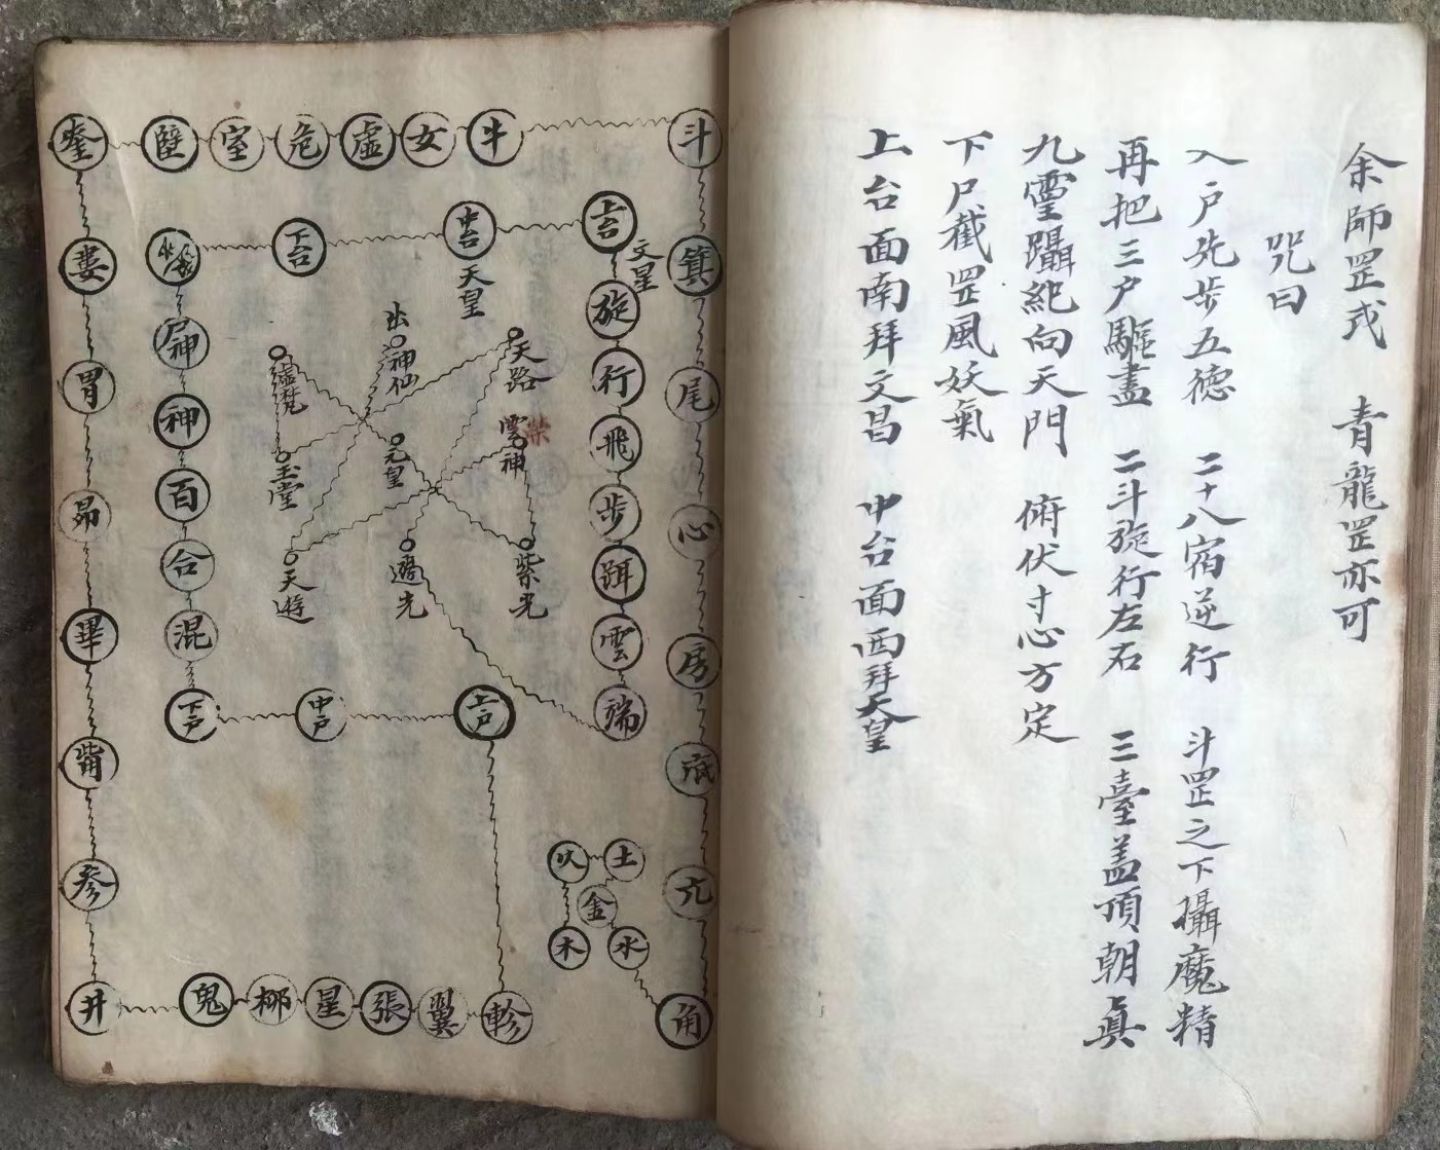 余師罡式　青龍罡亦可
咒曰
入户先步五德　二十八宿逆行　斗罡之下攝魔精
再把三户驅盡　二斗旋行左右　三臺盖頂朝真
九靈躡紀向天門　俯伏寸心方定
下尸截罡風妖氣
上台面南拜文昌　中台面西拜天皇
斗
牛
女
虛
危
室
壁
奎
箕
尾
心
房
氐
亢
角
婁
胃
昴
畢
觜
參
井
鬼
柳
星
張
翼
軫
上台
文星
中台
天皇
下台
旋
行
飛
步
躡
雲
端
神
百
合
混
下户
中户
上户
天路
出神仙
玉堂
元皇
神
天遊
紫光
火
土
金
木
水